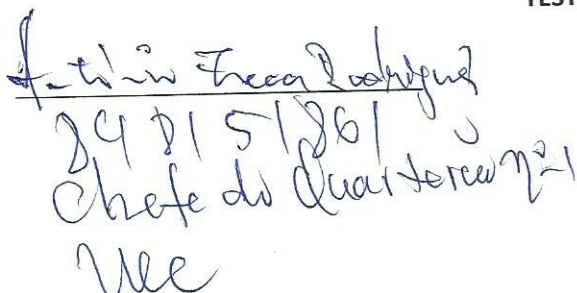 TEST
António Rodrigues
848151861
Chefe do Quarteirão nº1